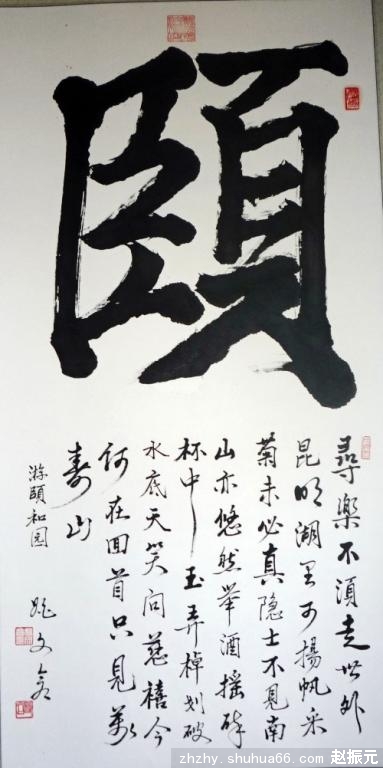 頤
尋樂不須走世外
昆明湖里可揚帆采
菊未必真隐士不見南
山亦悠然举酒摇碎
杯中玉弄棹划破
水底天笑问慈禧今
何在回首只見萬
壽山
游頤和园
姚文
zhzhy.shuhua66.com 赵振元